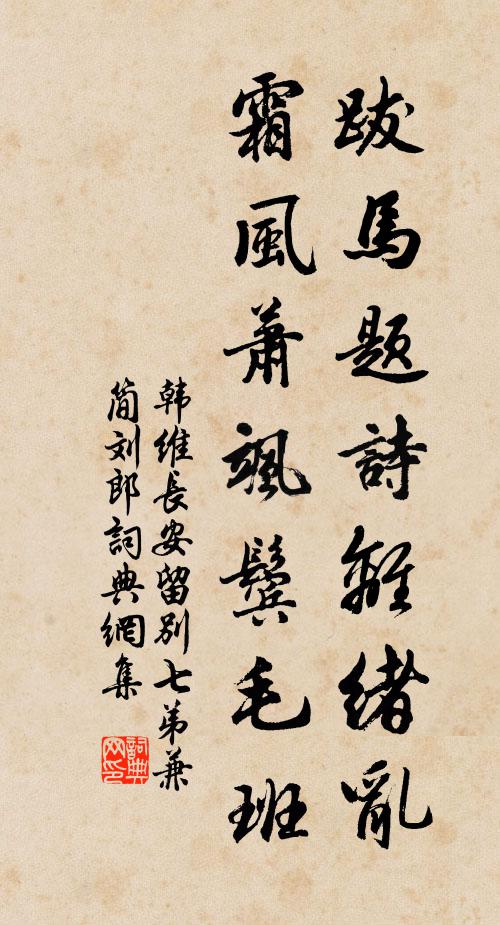 跋馬題詩離緒亂
霜風蕭颯鬢毛班
韩维長安留别七弟兼
简刘郎詞典網集
詞典网印